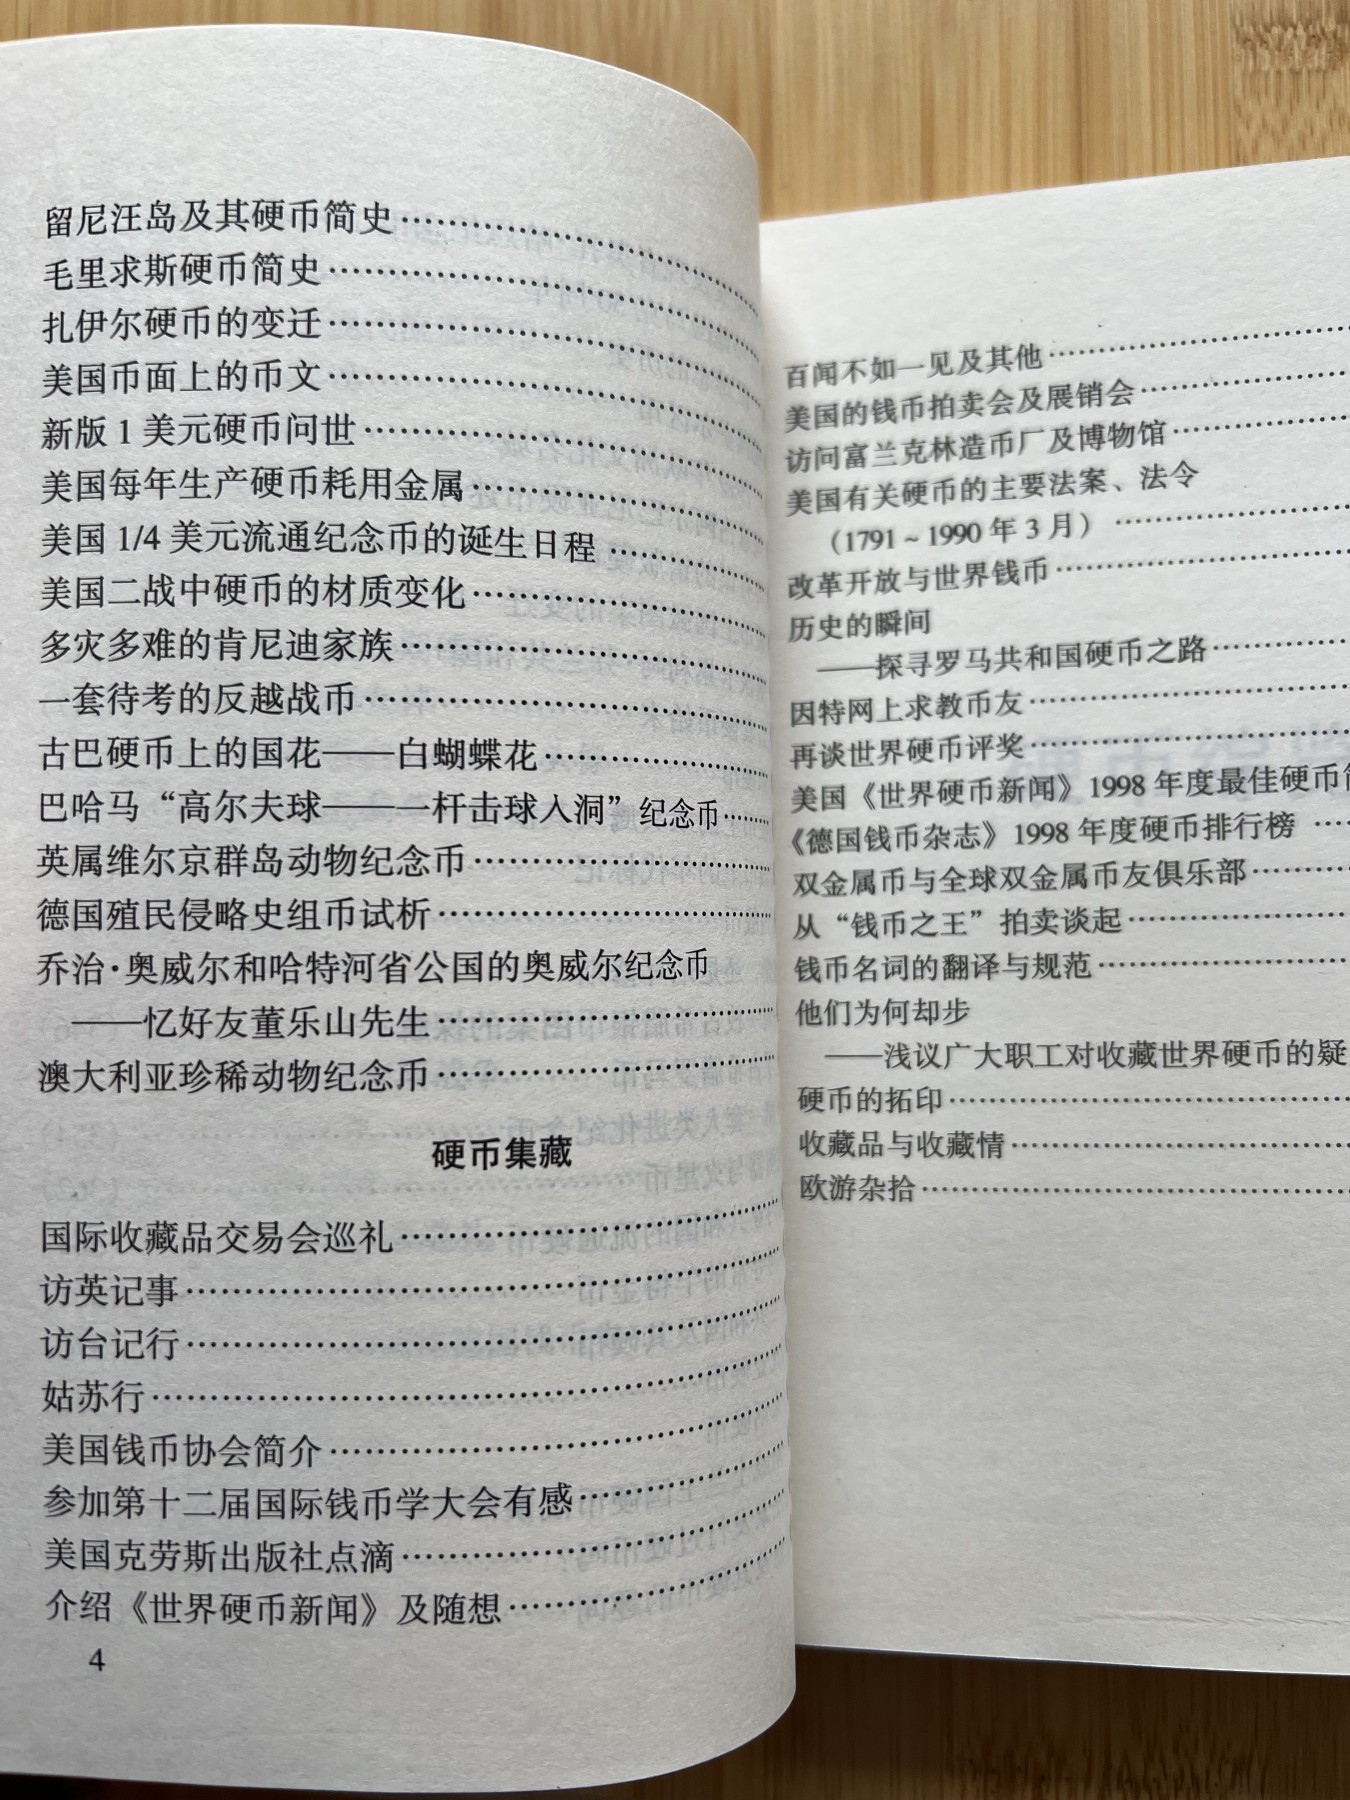 留尼汪岛及其硬币简史
毛里求斯硬币简史
扎伊尔硬币的变迁
美国币面上的币文
新版1美元硬币问世
美国每年生产硬币耗用金属
美国1/4美元流通纪念币的诞生日程
美国二战中硬币的材质变化
多灾多难的肯尼迪家族
一套待考的反越战币
古巴硬币上的国花——白蝴蝶花
巴哈马“高尔夫球——一杆击球入洞”纪念币
英属维尔京群岛动物纪念币
德国殖民侵略史组币试析
乔治·奥威尔和哈特河省公国的奥威尔纪念币
——忆好友董乐山先生
澳大利亚珍稀动物纪念币
硬币集藏
国际收藏品交易会巡礼
访英记事
访台记行
姑苏行
美国钱币协会简介
参加第十二届国际钱币学大会有感
美国克劳斯出版社点滴
介绍《世界硬币新闻》及随想
4
百闻不如一见及其他
美国的钱币拍卖会及展销会
访问富兰克林造币厂及博物馆
美国有关硬币的主要法案、法令
（1791~1990年3月）
改革开放与世界钱币
历史的瞬间
——探寻罗马共和国硬币之路
因特网上求教币友
再谈世界硬币评奖
美国《世界硬币新闻》1998年度最佳硬币
《德国钱币杂志》1998年度硬币排行榜
双金属币与全球双金属币友俱乐部
从“钱币之王”拍卖谈起
钱币名词的翻译与规范
他们为何却步
——浅议广大职工对收藏世界硬币的疑
硬币的拓印
收藏品与收藏情
欧游杂拾